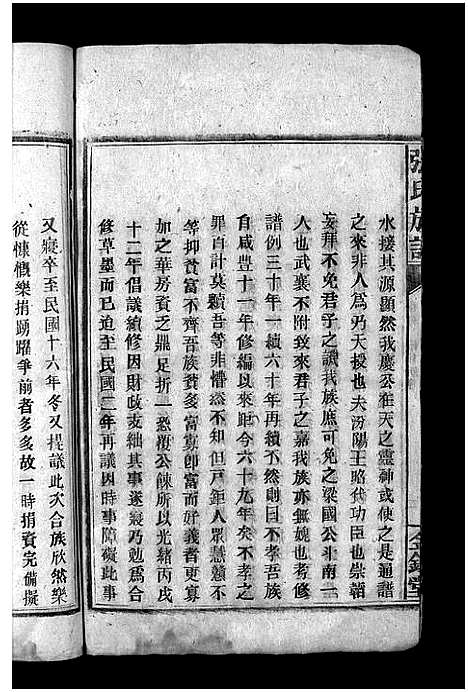 張氏族譜
金鑑堂
水接其源顯然我慶公在天之靈神或使之是通譜
之來非人爲乃天授也夫汾陽王昭代功臣也崇韜
妄拜不免君子之譏我族庶可免之梁國公斗南一
人也武襄不附致來君子之嘉我族亦無媿也考修
譜例三十年一續六十年再續不然則曰不孝吾族
自咸豐十一年修編以來距今六十九年矣不孝之
罪百計莫贖吾等非懵焉不知但戸鉅人眾愚戅不
等抑貧富不齊吾族貧多富寡卽富而好義者更寡
加之華房資乏鼎足折一恐覆公餗所以光緒丙戌
十二年倡議續修因財政支絀其事遂寢乃勉爲合
修草墨而已迨至民國二年再議因時事障礙此事
又寢卒至民國十六年冬又提議此次合族欣然樂
從慷慨樂捐踴躍爭前者多多故一時捐資完備擬